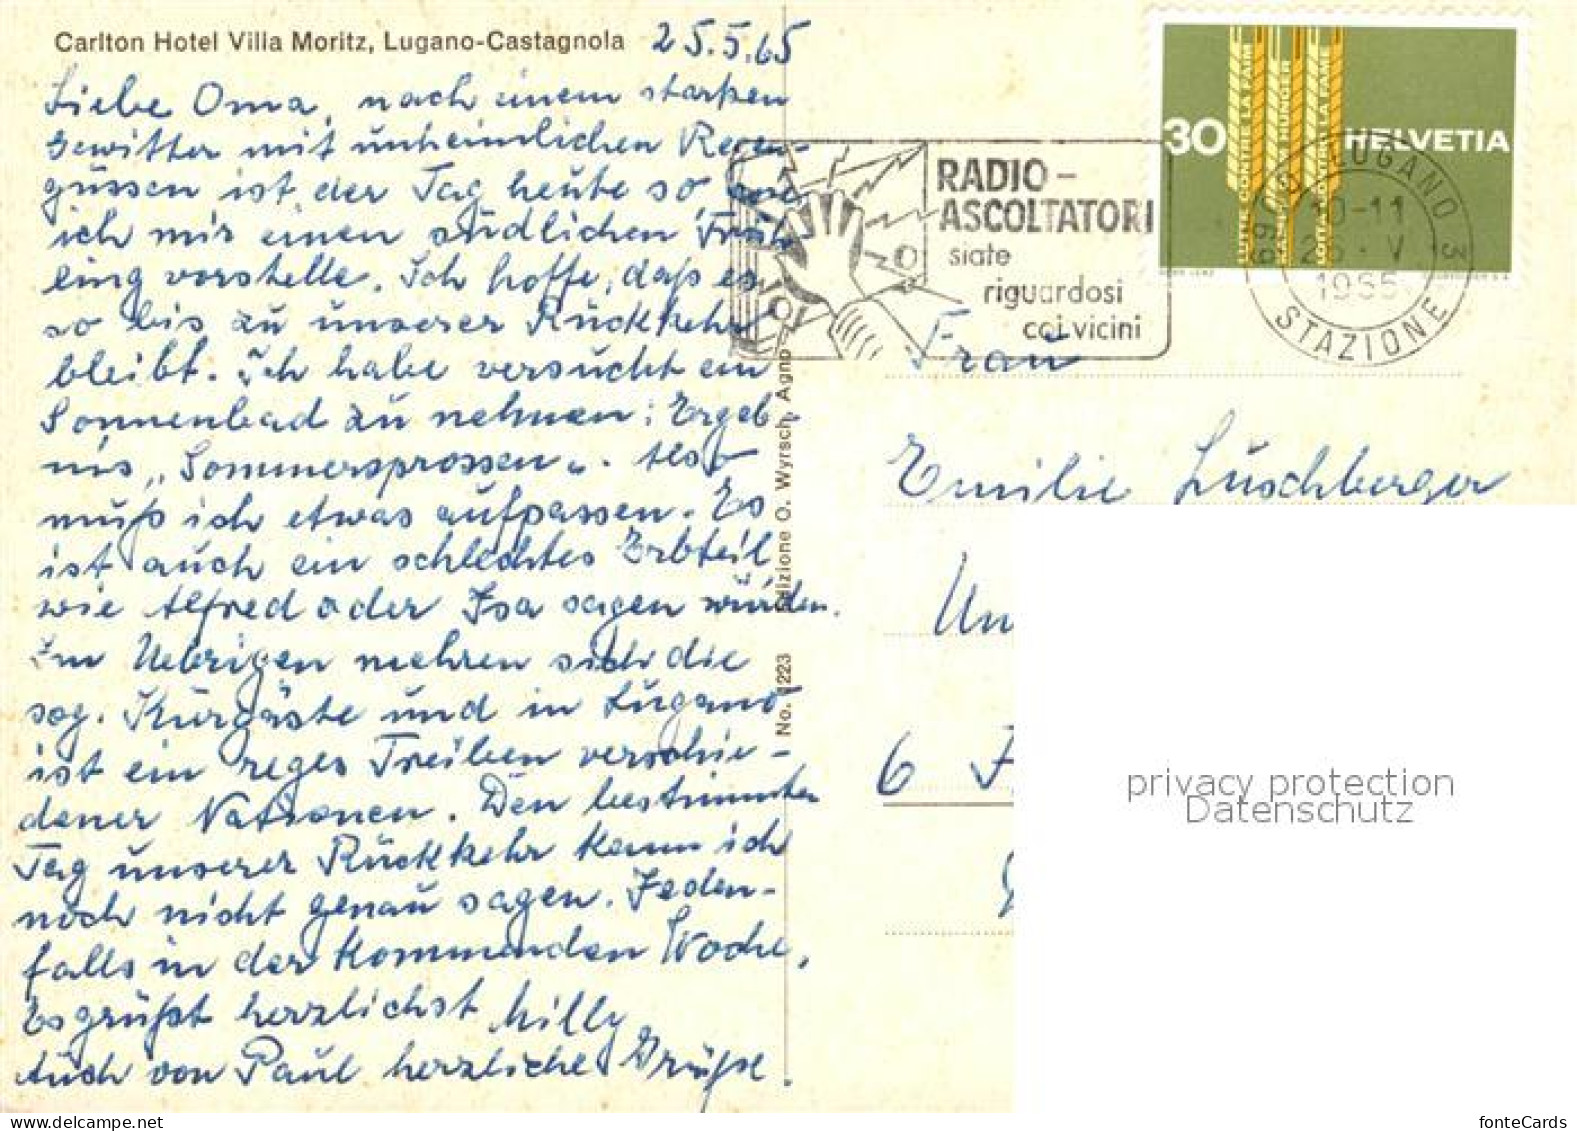 Carlton Hotel Villa Moritz, Lugano-Castagnola
25.5.65
Liebe Oma, nach einem starken
Gewitter mit unheimlichen Regen-
güssen ist der Tag heute so wie
ich mir einen südlichen Früh-
ling vorstelle. Ich hoffe, daß es
so bis zu unserer Rückkehr
bleibt. Ich habe versucht ein
Sonnenbad zu nehmen; Ergeb-
nis „Sommersprossen“. Also
muß ich etwas aufpassen. Es
ist auch ein schlechtes Erbteil
wie Alfred oder Isa sagen würden.
Im Uebrigen mehren sich die
sog. Kurgäste und in Lugano
ist ein reges Treiben verschie-
dener Nationen. Den bestimmten
Tag unserer Rückkehr kann ich
noch nicht genau sagen. Jeden-
falls in der kommenden Woche.
Es grüßt herzlichst Milly
Auch von Paul herzliche Grüße.
No. 1223 Edizione O. Wyrsch, Agno
RADIO-
ASCOLTATORI
siate
riguardosi
coi vicini
30
HELVETIA
LUTTE CONTRE LA FAIM
KAMPF DEM HUNGER
LOTTA CONTRO LA FAME
6900 LUGANO 3
10-11
1965
STAZIONE
Frau
Emilie Luschberger
Un
6 F
privacy protection
Datenschutz
fonteCards